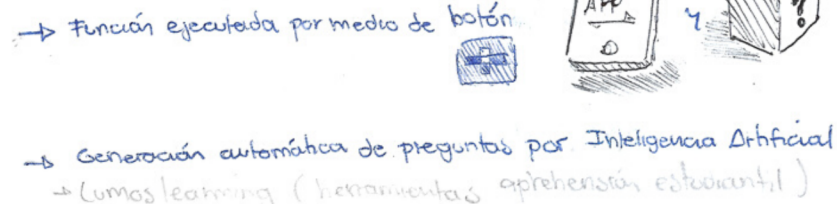 APP
→ Función ejecutada por medio de botón y ?
→ Generación automática de preguntas por Inteligencia Artificial
→ Lumos learning (herramientas aprehensión estudiantil)